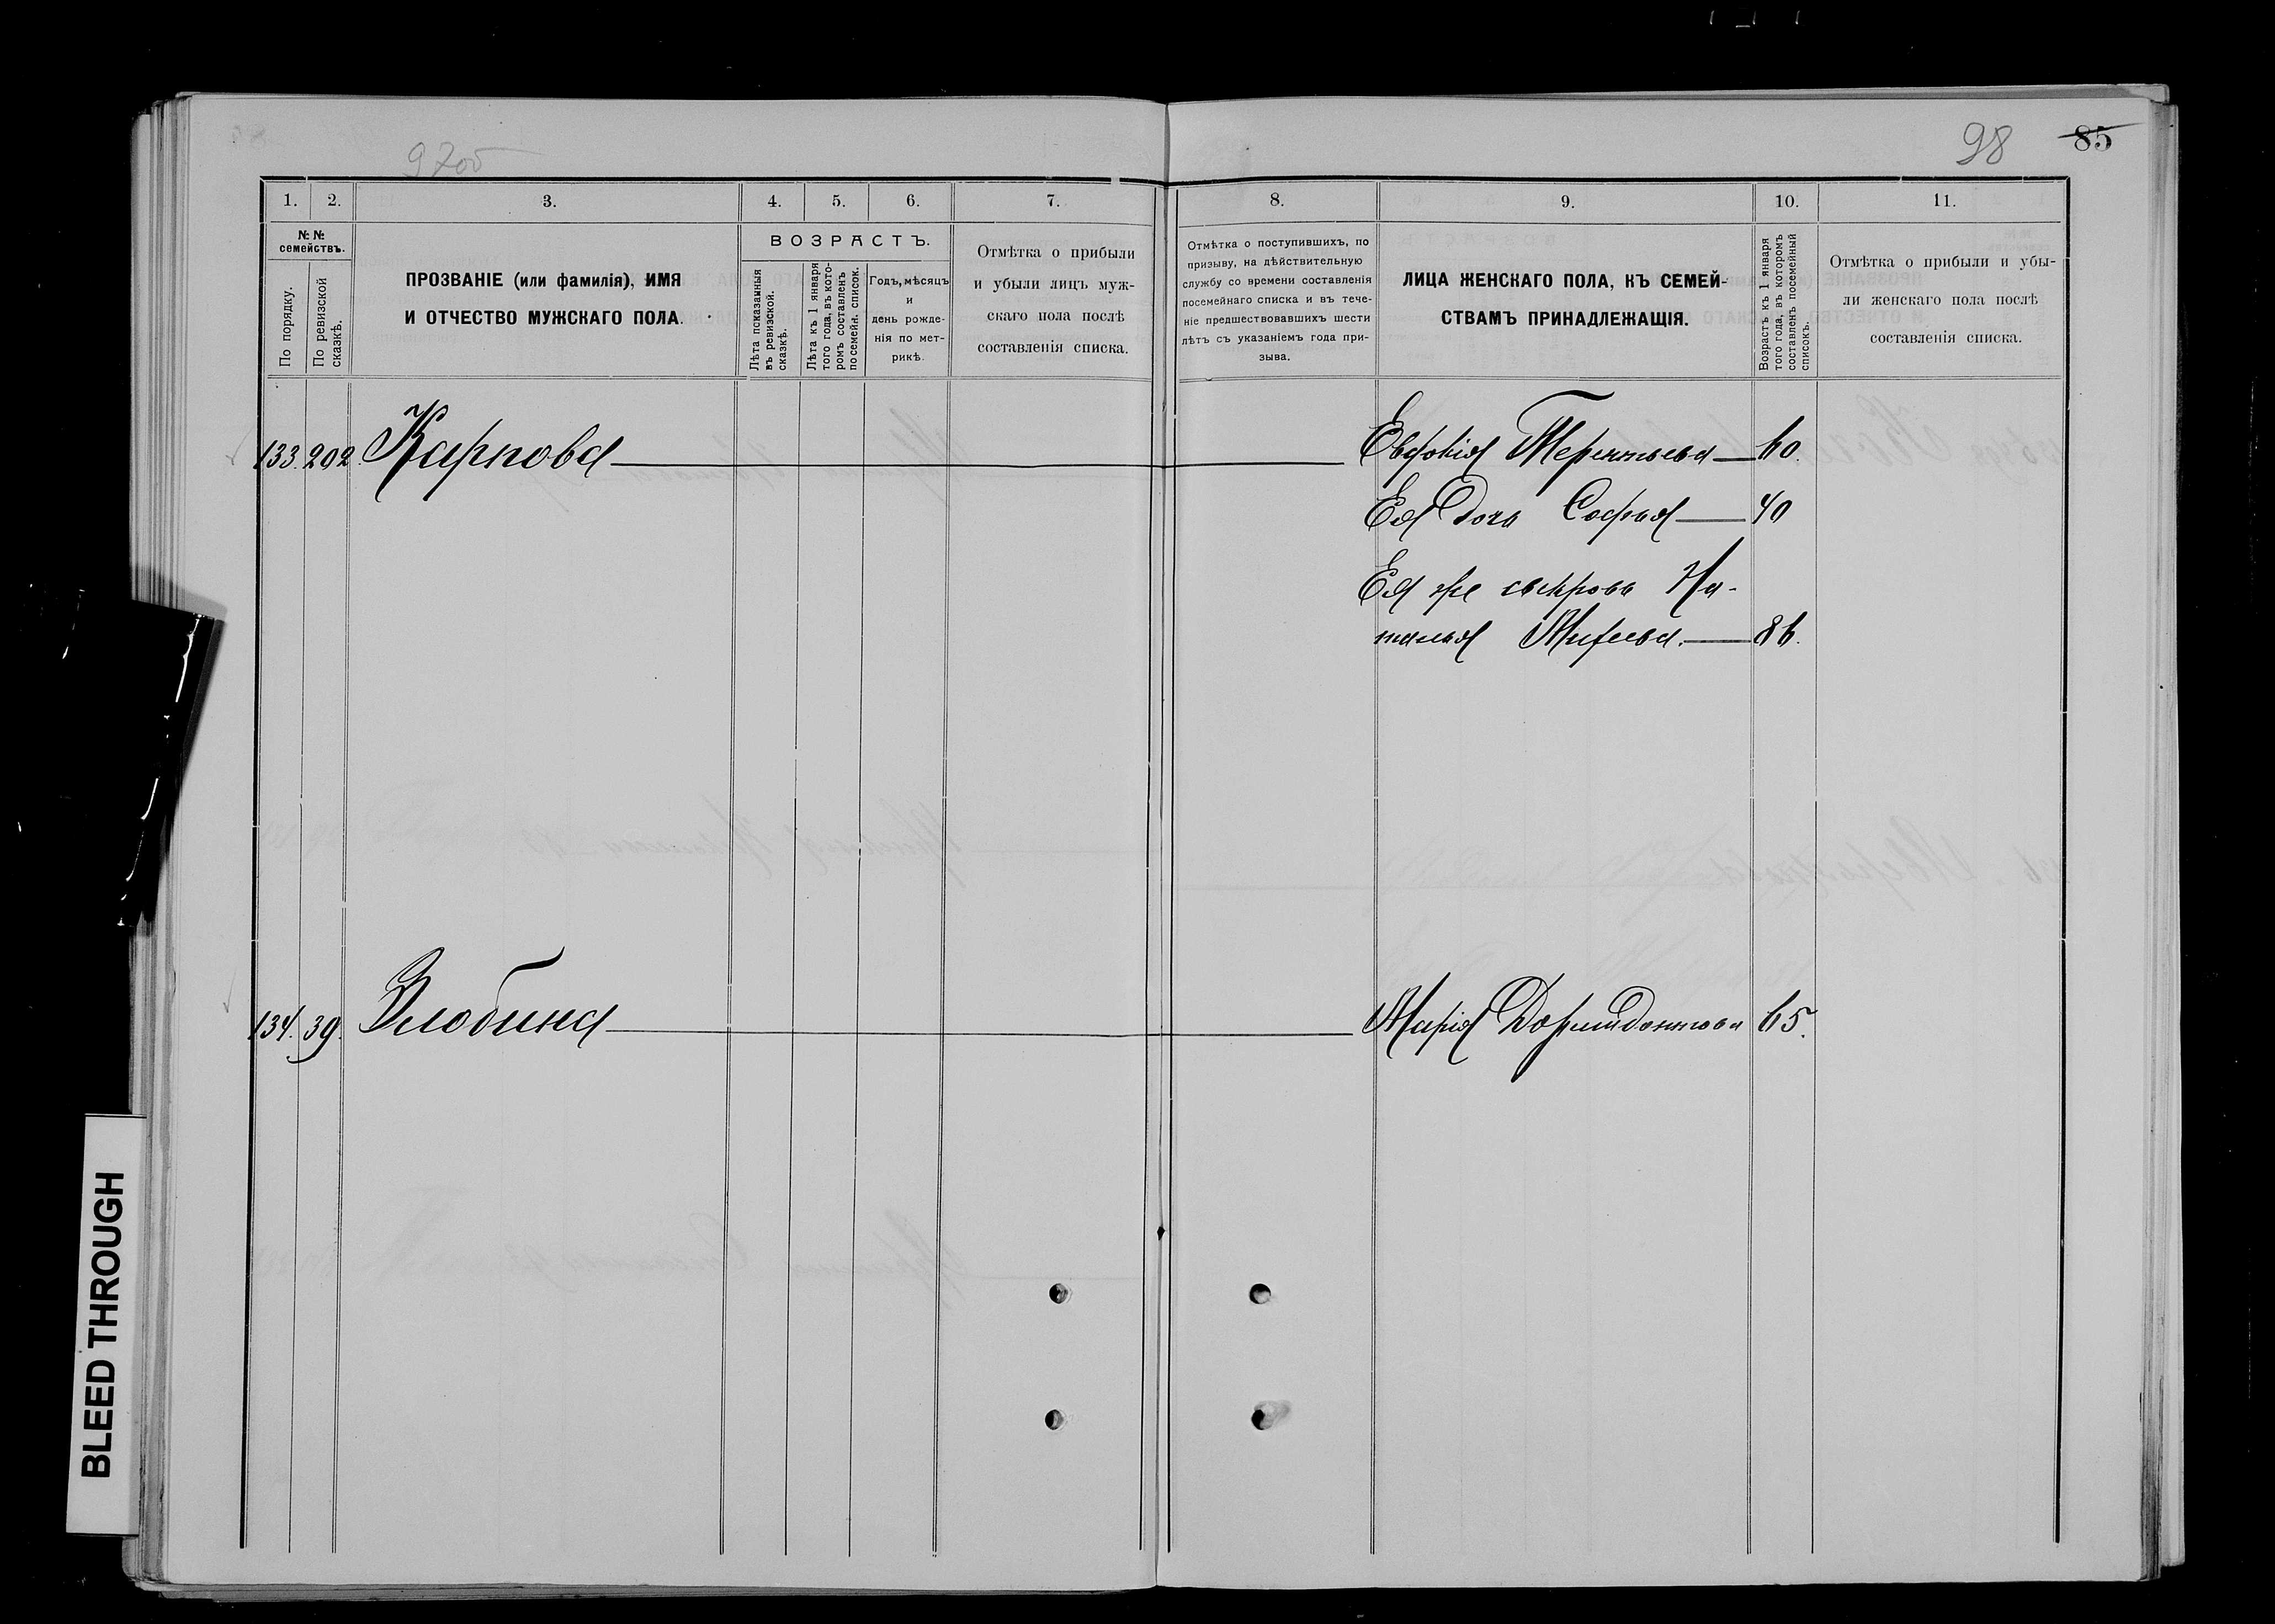 98 85
1. 2. 3. 4. 5. 6. 7. 8. 9. 10. 11.
№ №
семействъ.
По порядку.
По ревизской
сказкѣ.
ПРОЗВАНІЕ (или фамилія), ИМЯ
И ОТЧЕСТВО МУЖСКАГО ПОЛА.
ВОЗРАСТЪ.
Лѣта показанныя
въ ревизской.
сказкѣ.
Лѣта къ 1 января
того года, въ кото-
ромъ составленъ
посемейн. список.
Годъ, мѣсяцъ
и
день рожде-
нія по мет-
рикѣ.
Отмѣтка о прибыли
и убыли лицъ муж-
скаго пола послѣ
составленія списка.
Отмѣтка о поступившихъ, по
призыву, на дѣйствительную
службу со времени составленія
посемейнаго списка и въ тече-
ніе предшествовавшихъ шести
лѣтъ съ указаніемъ года при-
зыва.
ЛИЦА ЖЕНСКАГО ПОЛА, КЪ СЕМЕЙ-
СТВАМЪ ПРИНАДЛЕЖАЩІЯ.
Возрастъ къ 1 января
того года, въ которомъ
составленъ посемейный
списокъ.
Отмѣтка о прибыли и убы-
ли женскаго пола послѣ
составленія списка.
133. 292. Карпова Евдокія Терентьева 60.
Ея дочь Софья 40
Ея же свекровь На-
талья 86.
134. 39. Злобина Марія Дормидонтова 65.
BLEED THROUGH